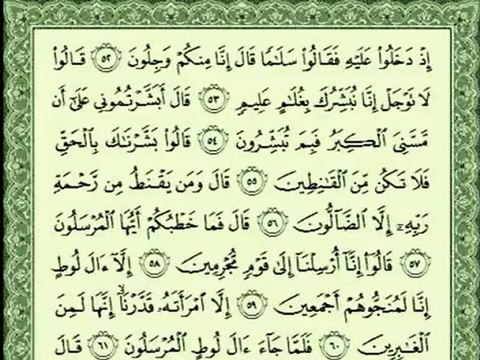 إِذْ دَخَلُوا۟ عَلَيْهِ فَقَالُوا۟ سَلَٰمًا قَالَ إِنَّا مِنكُمْ وَجِلُونَ ٥٢ قَالُوا۟
لَا تَوْجَلْ إِنَّا نُبَشِّرُكَ بِغُلَٰمٍ عَلِيمٍ ٥٣ قَالَ أَبَشَّرْتُمُونِى عَلَىٰٓ أَن
مَّسَّنِىَ ٱلْكِبَرُ فَبِمَ تُبَشِّرُونَ ٥٤ قَالُوا۟ بَشَّرْنَٰكَ بِٱلْحَقِّ
فَلَا تَكُن مِّنَ ٱلْقَٰنِطِينَ ٥٥ قَالَ وَمَن يَقْنَطُ مِن رَّحْمَةِ
رَبِّهِۦٓ إِلَّا ٱلضَّآلُّونَ ٥٦ قَالَ فَمَا خَطْبُكُمْ أَيُّهَا ٱلْمُرْسَلُونَ
٥٧ قَالُوٓا۟ إِنَّآ أُرْسِلْنَآ إِلَىٰ قَوْمٍ مُّجْرِمِينَ ٥٨ إِلَّآ ءَالَ لُوطٍ
إِنَّا لَمُنَجُّوهُمْ أَجْمَعِينَ ٥٩ إِلَّا ٱمْرَأَتَهُۥ قَدَّرْنَآ إِنَّهَا لَمِنَ
ٱلْغَٰبِرِينَ ٦٠ فَلَمَّا جَآءَ ءَالَ لُوطٍ ٱلْمُرْسَلُونَ ٦١ قَالَ